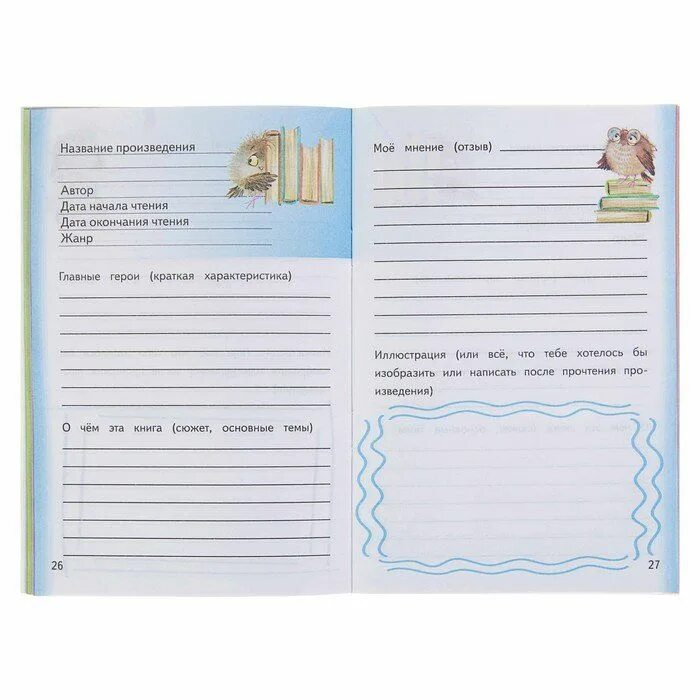 Название произведения
Автор
Дата начала чтения
Дата окончания чтения
Жанр
Главные герои (краткая характеристика)
О чём эта книга (сюжет, основные темы)
26
Моё мнение (отзыв)
Иллюстрация (или всё, что тебе хотелось бы
изобразить или написать после прочтения про-
изведения)
27